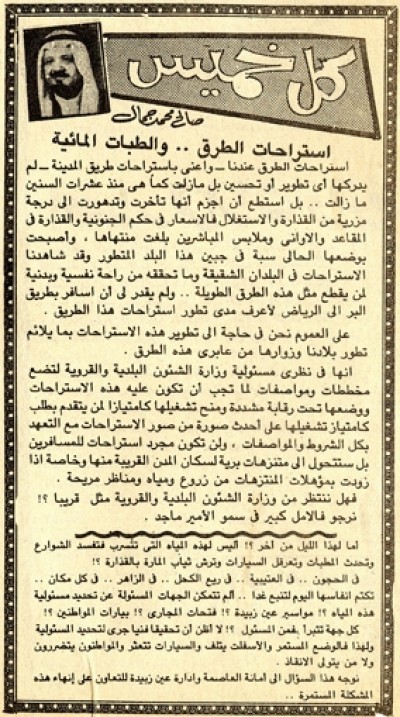 كل خميس
صالح محمد جمال
استراحات الطرق .. والطبات المائية
استراحات الطرق عندنا ــ واعنى باستراحات طريق المدينة ــ لم
يدركها أى تطوير أو تحسين بل مازلت كما هى منذ عشرات السنين
ما زالت .. بل استطع أن اجزم أنها تأخرت وتدهورت الى درجة
مزرية من القذارة والاستغلال فالاسعار فى حكم الجنونية والقذارة فى
المقاعد والاوانى وملابس المباشرين بلغت منتهاها ، وأصبحت
بوضعها الحالى سبة فى جبين هذا البلد المتطور وقد شاهدنا
الاستراحات فى البلدان الشقيقة وما تحققه من راحة نفسية وبدنية
لمن يقطع مثل هذه الطرق الطويلة .. ولم يقدر لى أن اسافر بطريق
البر الى الرياض لأعرف مدى تطور استراحات هذا الطريق .
على العموم نحن فى حاجة الى تطوير هذه الاستراحات بما يلائم
تطور بلادنا وزوارها من عابرى هذه الطرق .
انها فى نظرى مسئولية وزارة الشئون البلدية والقروية لتضع
مخططات ومواصفات لما تجب أن تكون عليه هذه الاستراحات
ووضعها تحت رقابة مشددة ومنح تشغيلها كامتيازا لمن يتقدم بطلب
كامتياز تشغيلها على أحدث صورة من صور الاستراحات مع التعهد
بكل الشروط والمواصفات ، ولن تكون مجرد استراحات للمسافرين
بل ستتحول الى متنزهات برية لسكان المدن القريبة منها وخاصة اذا
زودت بمؤهلات المتنزهات من زروع ومياه ومناظر مريحة .
فهل ننتظر من وزارة الشئون البلدية والقروية مثل قريبا ؟!
نرجو فالامل كبير فى سمو الأمير ماجد .
أما لهذا الليل من آخر ؟! أليس لهذه المياه التى تتسرب فتفسد الشوارع
وتحدث المطبات وتعرقل السيارات وترش ثياب المارة بالقذارة ؟!
فى الحجون .. فى العتيبية .. فى ريع الكحل .. فى الزاهر .. فى كل مكان ..
تكتم انفاسها اليوم لتنبع غدا .. ألم تتمكن الجهات المسئولة عن تحديد مسئولية
هذه المياه ؟! مواسير عين زبيدة ؟! فتحات المجارى ؟! بيارات المواطنين ؟!
كل جهة تتبرأ فمن المسئول ؟! لا أظن أن تحقيقا فنيا جرى لتحديد المسئولية
ولهذا فالوضع المستمر والاسفلت يتلف والسيارات تتعثر والمواطنون يتضررون
ولا من يتولى الانقاذ .
نوجه هذا السؤال الى أمانة العاصمة وادارة عين زبيدة للتعاون على إنهاء هذه
المشكلة المستمرة ..